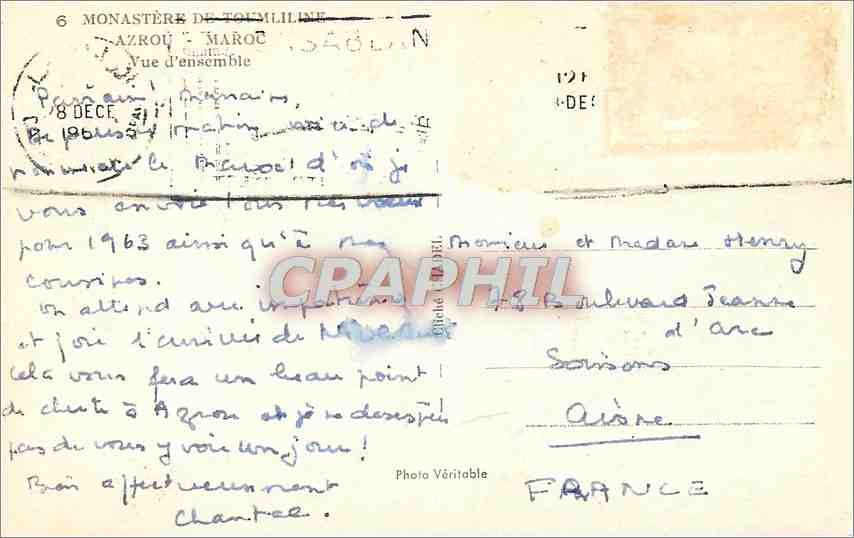 6 MONASTÈRE DE TOUMLILINE
AZROU - MAROC
Vue d'ensemble
8 DECE
196
Parrain, Marraine,
de
le Maroc d'où je
vous envoie tous mes voeux
pour 1963 ainsi qu'à mes
cousines.
on attend avec impatience
et joie l'arrivée de
Cela vous fera un beau point
de chute à Azrou et je ne désespère
pas de vous y voir un jour!
Bien affectueusement
Chantal.
Cliché CHADEL
Photo Véritable
Monsieur et Madame Henry
48 Boulevard Jeanne
d'Arc
Soissons
Aisne
FRANCE
CPAPHIL